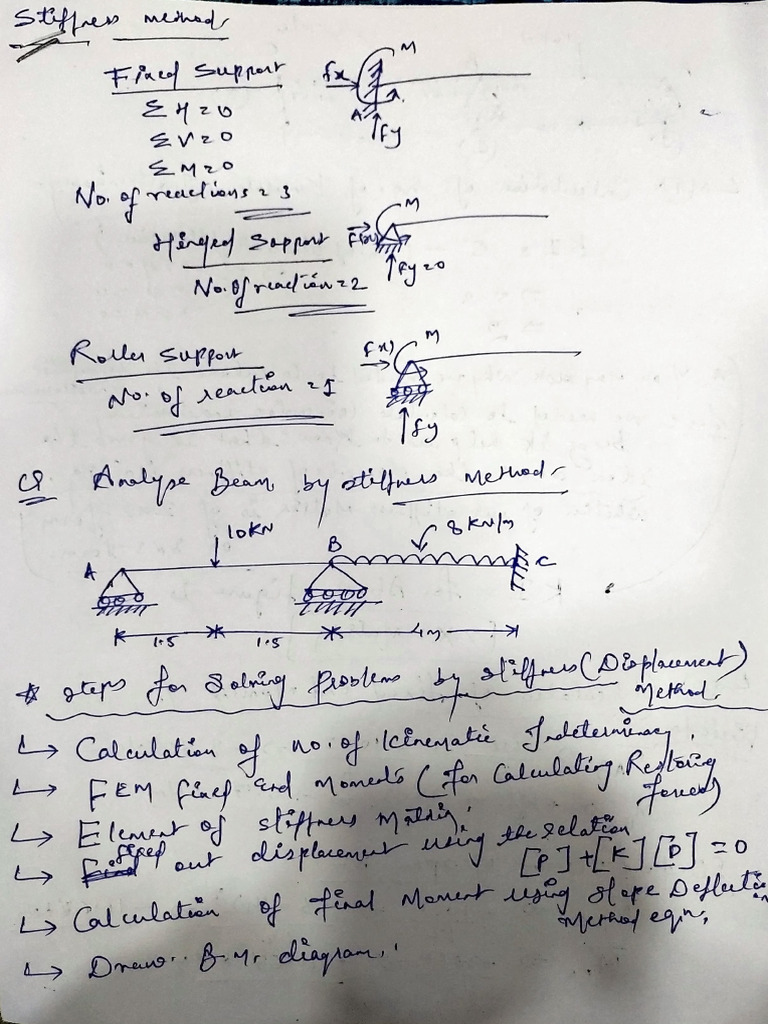 Stiffness method.
Fixed Support
fx
M
ΣH=0
A
fy
ΣV=0
ΣM=0
No. of reactions = 3
M
Hinged Support
F(x)
fy=0
No. of reaction = 2
Roller Support
f(x)
M
No. of reaction = 1
fy
Q Analyse Beam by stiffness method.
10KN
8 KN/m
A
B
C
1.5
1.5
4m
* Steps for Solving Problems by stiffness (Displacement) Method.
↳ Calculation of no. of Kinematic Indeterminacy.
↳ FEM fixed end Moments (for Calculating Restoring forces)
↳ Element of stiffness Matrix.
↳ find out displacement using the relation [P]+[K][D]=0
↳ Calculation of final Moment using slope Deflection Method eqn.
↳ Draw B.M. diagram.